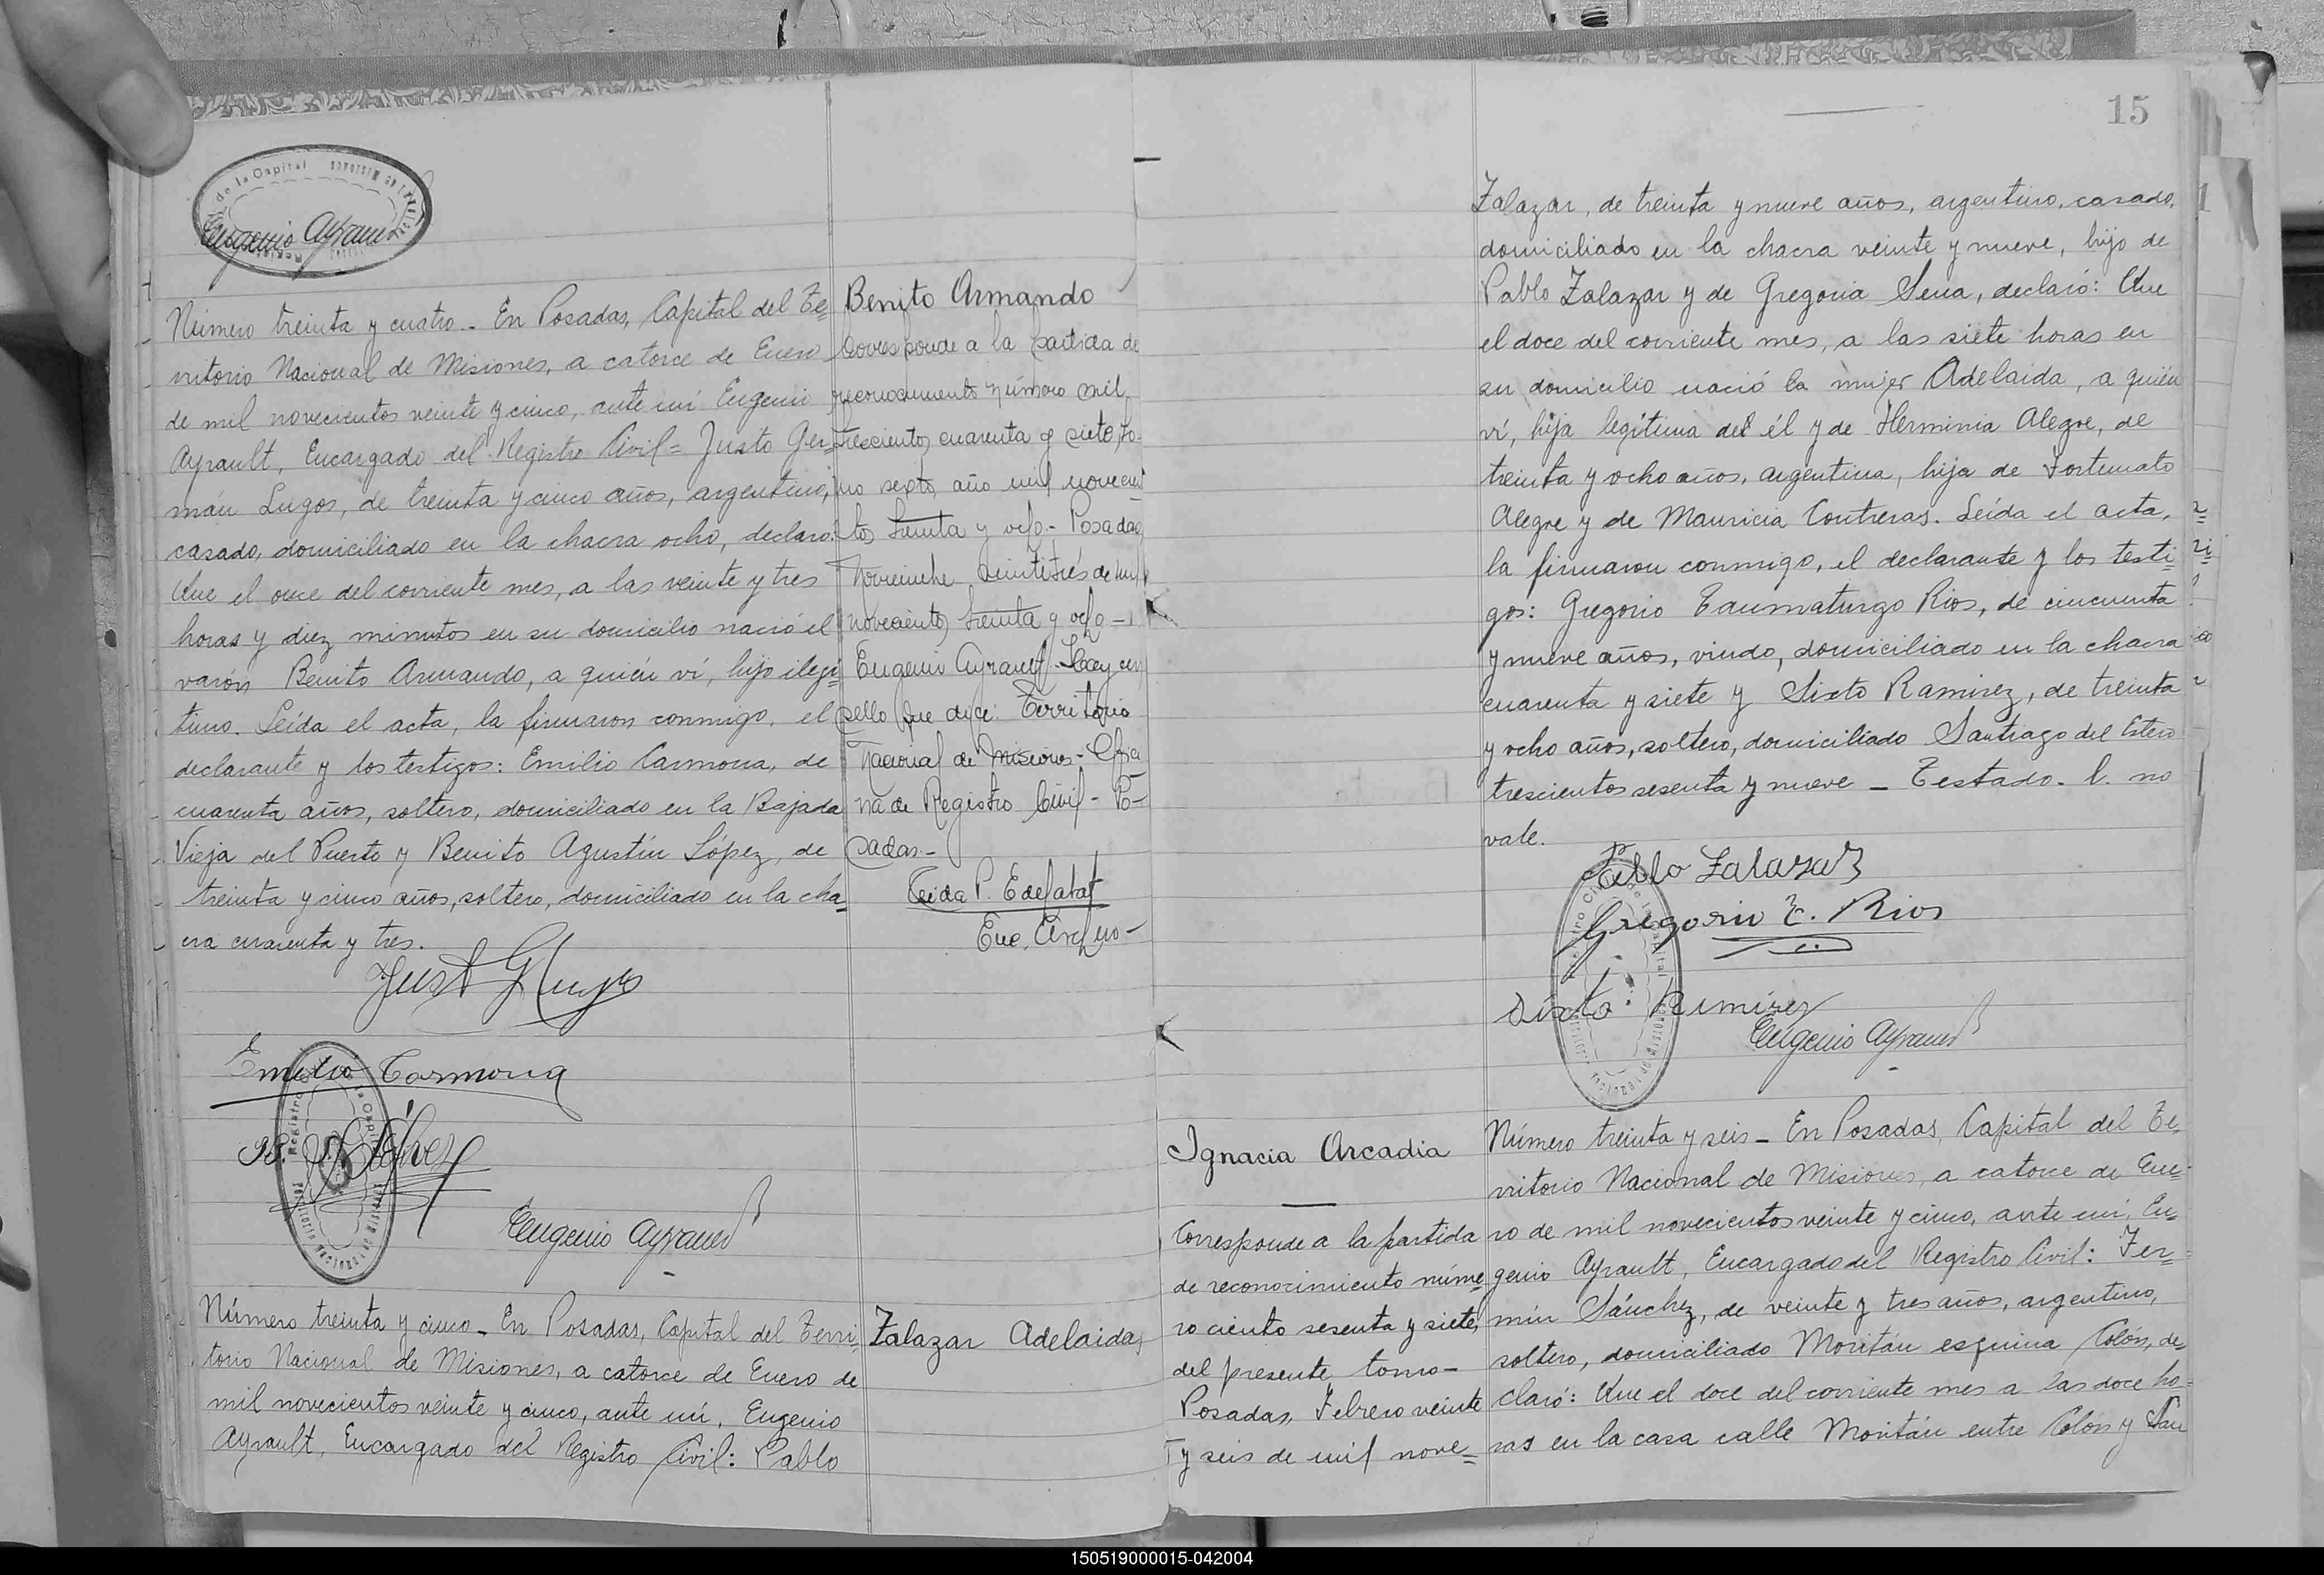 de la Capital
Eugenio Ayrault
Número treinta y cuatro - En Posadas, Capital del Te=
rritorio Nacional de Misiones, a catorce de Enero
de mil novecientos veinte y cinco, ante mí Eugenio
Ayrault, Encargado del Registro Civil = Justo Ger=
mán Lugos, de treinta y cinco años, argentino,
casado, domiciliado en la chacra ocho, declaró:
Que el once del corriente mes, a las veinte y tres
horas y diez minutos en su domicilio nació el
varón Benito Armando, a quién ví, hijo ilegí=
timo. Leída el acta, la firmaron conmigo, el
declarante y los testigos: Emilio Carmona, de
cuarenta años, soltero, domiciliado en la Bajada
Vieja del Puerto y Benito Agustín López, de
treinta y cinco años, soltero, domiciliado en la cha=
cra cuarenta y tres.
Emilio Carmona
Eugenio Ayrault
Benito Armando
Corresponde a la partida de
reconocimiento número mil
trescientos cuarenta y siete, to=
mo sexto, año mil novecien
tos treinta y ocho.- Posadas,
Noviembre veintitrés de mil
novecientos treinta y ocho.-
Eugenio Ayrault. Hay un
sello que dice: Territorio
Nacional de Misiones - Ofici
na de Registro Civil - Po-
sadas.-
Número treinta y cinco - En Posadas, Capital del Terri=
torio Nacional de Misiones, a catorce de Enero de
mil novecientos veinte y cinco, ante mí, Eugenio
Ayrault, Encargado del Registro Civil: Pablo
Zalazar Adelaida
15
Zalazar, de treinta y nueve años, argentino, casado,
domiciliado en la chacra veinte y nueve, hijo de
Pablo Zalazar y de Gregoria Sena, declaró: Que
el doce del corriente mes, a las siete horas en
su domicilio nació la mujer Adelaida, a quién
ví, hija legítima del él y de Herminia Alegre, de
treinta y ocho años, argentina, hija de Fortunato
Alegre y de Mauricia Contreras. Leída el acta,
la firmaron conmigo, el declarante y los testi=
gos: Gregorio Taumaturgo Rios, de cincuenta
y nueve años, viudo, domiciliado en la chacra
cuarenta y siete y Sixto Ramirez, de treinta
y ocho años, soltero, domiciliado Santiago del Estero
trescientos sesenta y nueve - Testado - l. no
vale.
Pablo Zalazar
Gregorio T. Rios
Sixto Ramirez
Eugenio Ayrault
Ignacia Arcadia
Corresponde a la partida
de reconocimiento núme=
ro ciento sesenta y siete,
del presente tomo -
Posadas, Febrero veinte
y seis de mil nove=
Número treinta y seis - En Posadas, Capital del Te=
rritorio Nacional de Misiones, a catorce de Ene=
ro de mil novecientos veinte y cinco, ante mí, Eu=
genio Ayrault, Encargado del Registro Civil: Fer=
mín Sánchez, de veinte y tres años, argentino,
soltero, domiciliado Moritán esquina Colón, de=
claró: Que el doce del corriente mes a las doce ho=
ras en la casa calle Moritán entre Colón y San
150519000015-042004